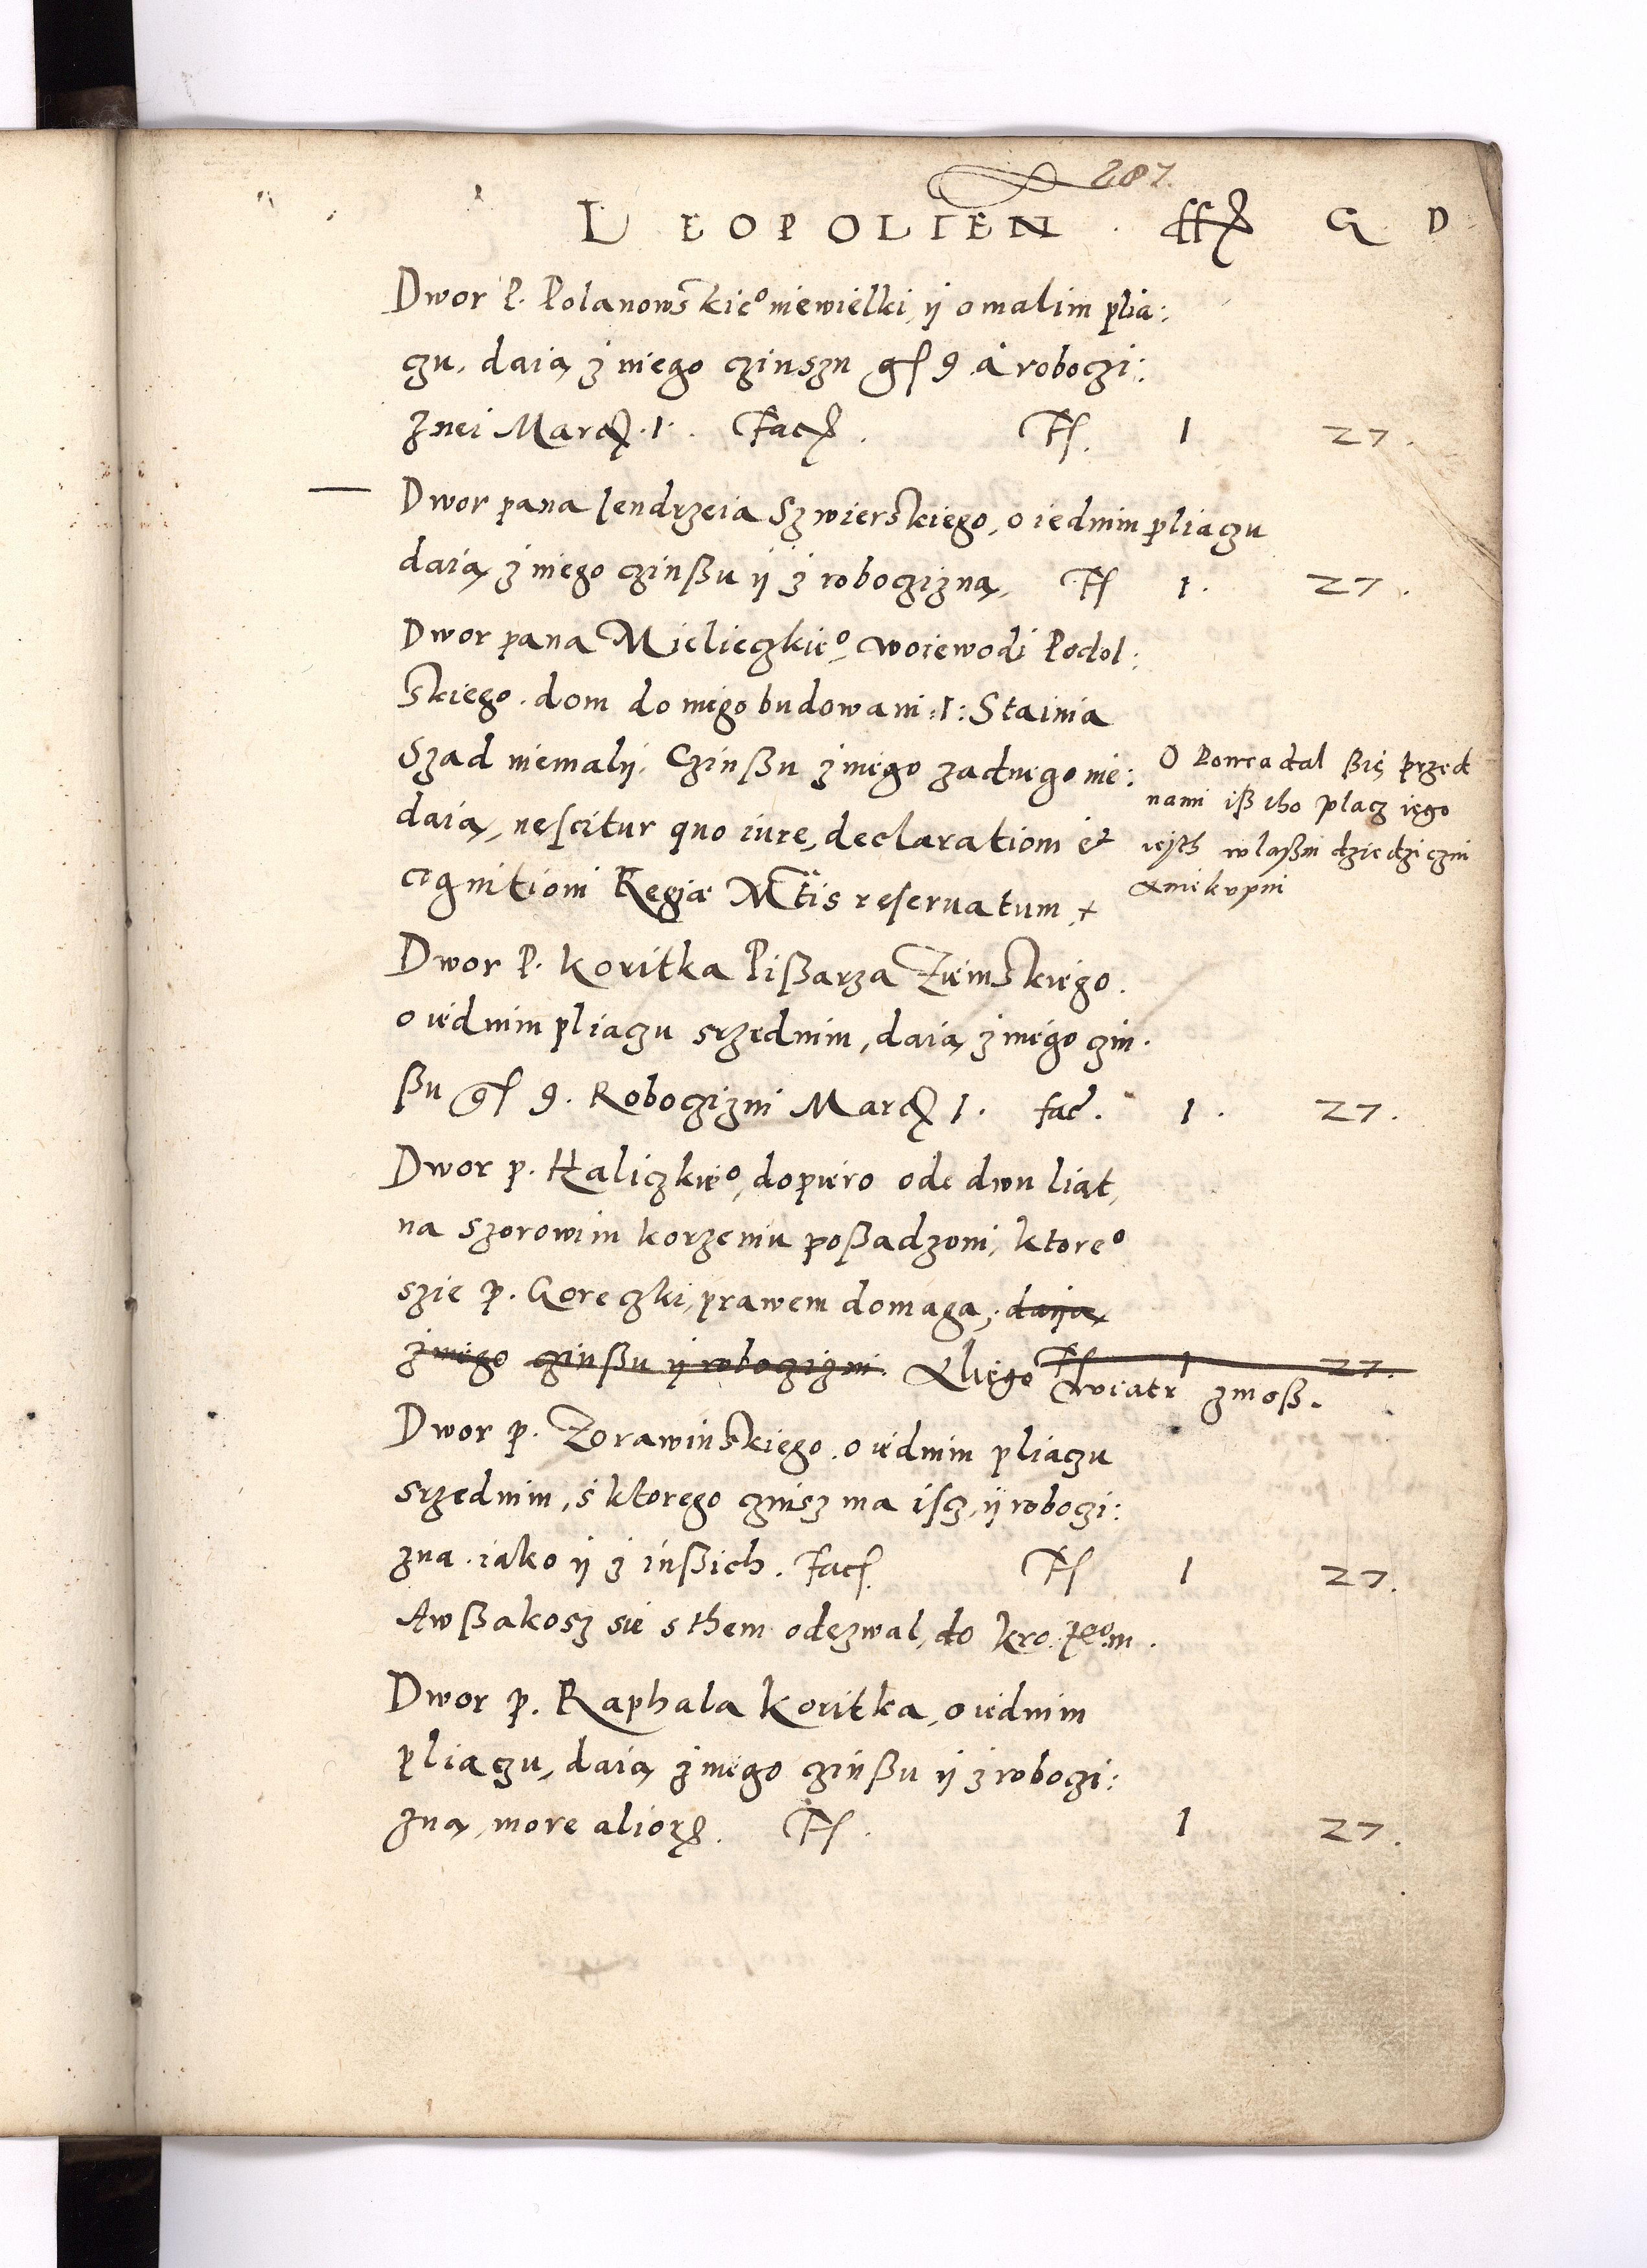 287.
LEOPOLIEN. ff G D
Dwor P. Polanowskieo niewielki, ij o malim plia:
czu, daią z niego czinszu gſ 9 a roboczi:
znei Marc 1. Fac. Fſ. 1 27.
Dwor pana Jendrzeia Szwierskiego, o iednim pliaczu
daią z niego czinßu ij z roboczizną, Fſ 1. 27.
Dwor pana Mielieczkieo, woiewodi Podol:
skiego. dom do niego budowani .1: Stainia
Szad niemalij. Czinßu z niego zadnego nie:
daią, neſcitur quo iure, declarationi et
cognitioni Regiæ Mtis reſeruatum +
O Powiadal ßię przed
nami iß tho placz iego
ieſth wlaßni dziedziczni
a nie kupni
Dwor P. Koritka Pißarza Ziemskiego.
o iednim pliaczu srzednim, daią z niego czin.
ßu gſ 9. Roboczizni Marc 1. fac. 1. 27.
Dwor p. Haliczkieo, dopiero ode dwu liat,
na szorowim korzeniu poßadzoni, ktoreo
szie p. Goreczki, prawem domaga, daiją
z niego czinßu ij roboczizni Fſ 1 27.
Aliego wiatr zinoß.
Dwor p. Zorawinskiego. o iednim pliaczu
srzednim, s ktorego czinsz ma iſcz, ij roboczi:
zna. iako ij z inßich. Facſ. Fſ 1 27.
Awßakosz sie s them odezwal, do kro. Jeom.
Dwor p. Raphala Koritka, o iednim
pliaczu, daią z niego czinßu ij z roboczi:
zną, more alior. Fſ. 1 27.